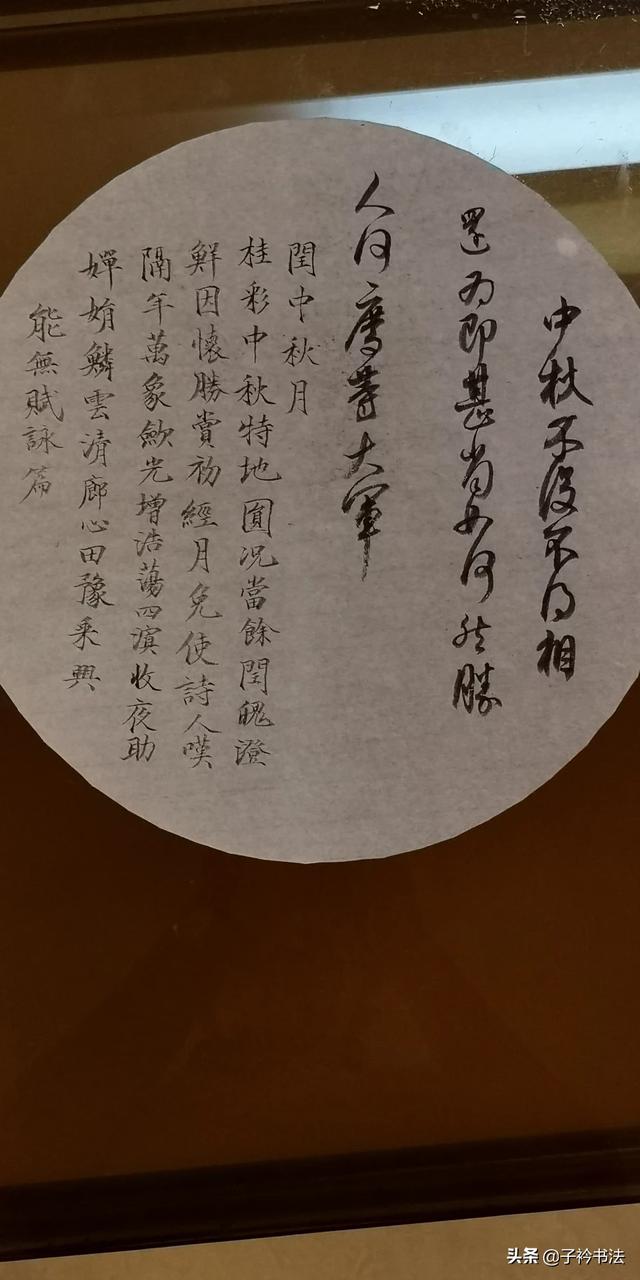 中秋不復不得相
還為即甚省如何然勝
人何慶等大軍
閏中秋月
桂彩中秋特地圓況當餘閏魄澄
鮮因懷勝賞初經月免使詩人嘆
隔年萬象歛光增浩蕩四溟收夜助
嬋娟鱗雲清廓心田豫乘興
能無賦詠篇
头条 @子衿书法